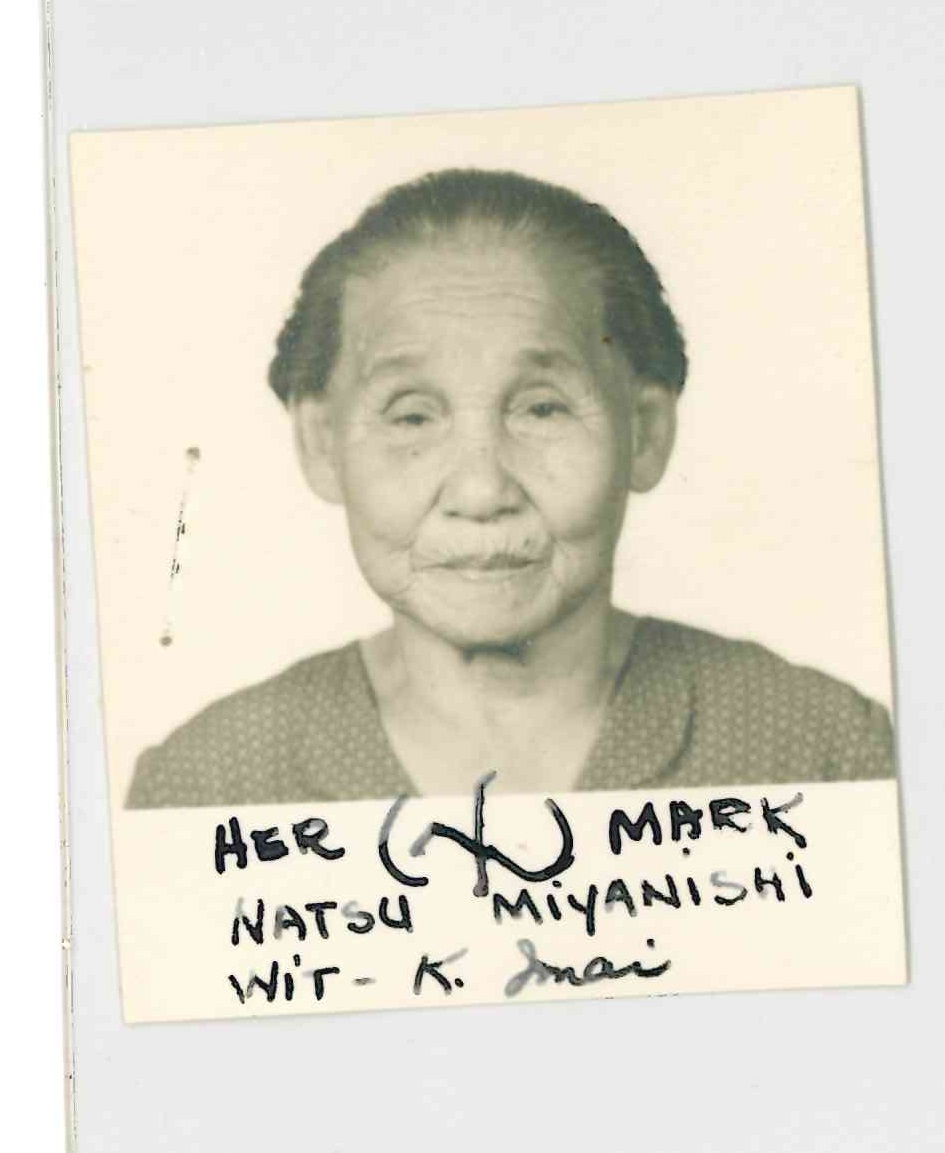 HER (X) MARK
NATSU MIYANISHI
WIT- K. Imai